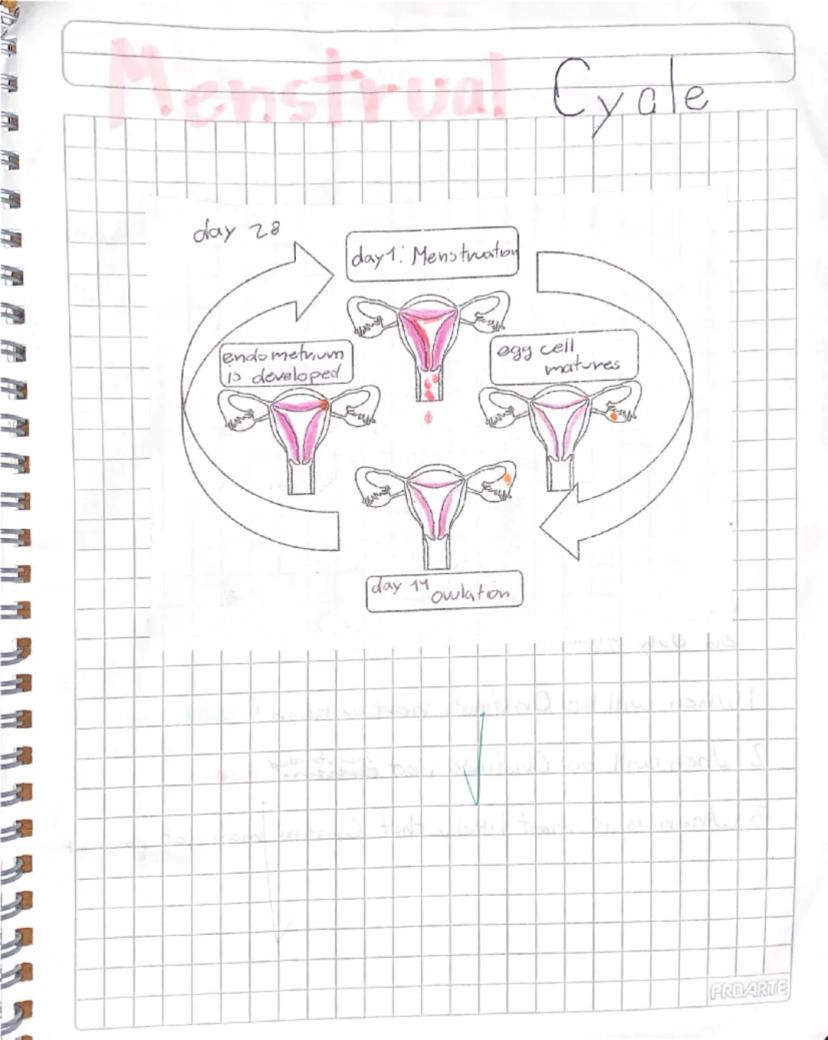 Menstrual Cycle
day 28
day 1: Menstruation
endometrium
is developed
egg cell
matures
day 14
ovulation
PROARTE